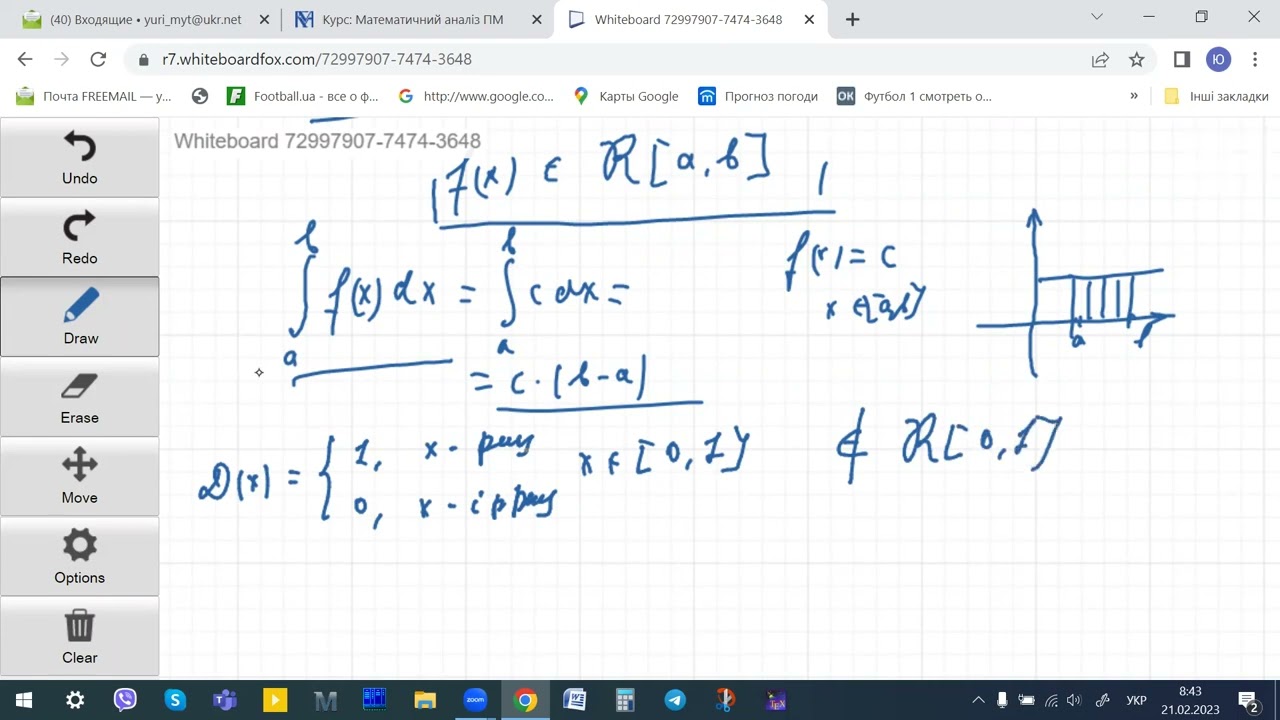 (40) Входящие • yuri_myt@ukr.net
Курс: Математичний аналіз ПМ
Whiteboard 72997907-7474-3648
r7.whiteboardfox.com/72997907-7474-3648
Ю
Почта FREEMAIL — у...
Football.ua - все о ф...
http://www.google.co...
Карты Google
Прогноз погоди
OK Футбол 1 смотреть о...
»
Інші закладки
Undo
Redo
Draw
Erase
Move
Options
Clear
Whiteboard 72997907-7474-3648
f(x) ∈ ℛ[a, b]
∫_a^b f(x) dx = ∫_a^b c dx =
= c · (b - a)
f(x) = c
x ∈ [a, b]
a b
D(x) = { 1, x - рац x ∈ [0, 1] ∉ ℛ[0, 1]
0, x - ірац
zoom
УКР
8:43
21.02.2023
2